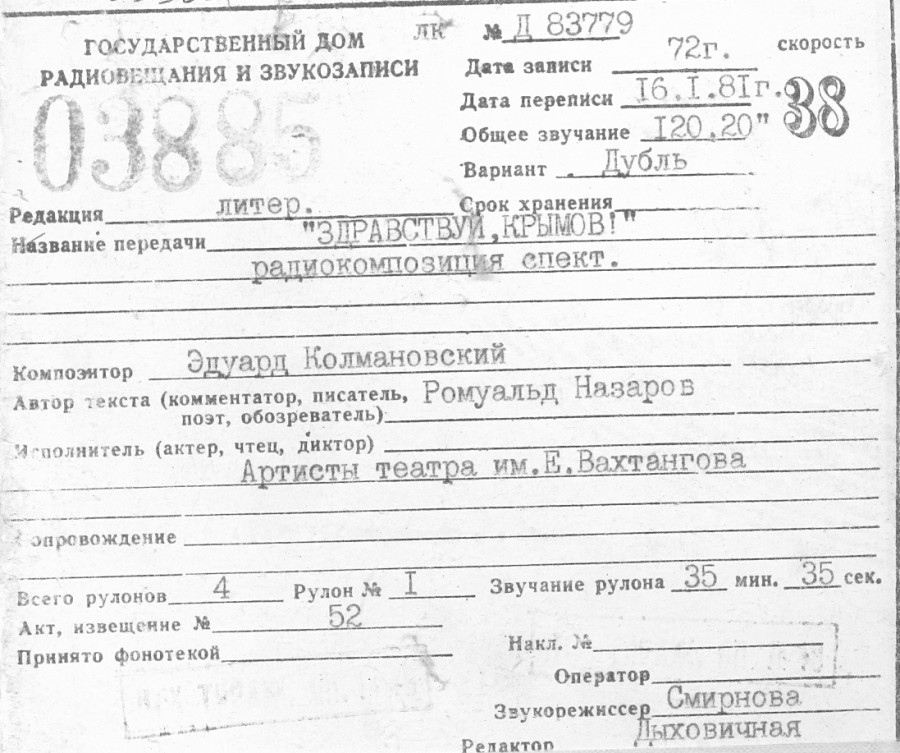 ЛК № Д 83779
ГОСУДАРСТВЕННЫЙ ДОМ
РАДИОВЕЩАНИЯ И ЗВУКОЗАПИСИ
03885
Дата записи 72г. скорость
Дата переписи 16.I.81г. 38
Общее звучание 120.20"
Вариант Дубль
Редакция литер. Срок хранения
Название передачи "ЗДРАВСТВУЙ,КРЫМОВ!"
радиокомпозиция спект.
Композитор Эдуард Колмановский
Автор текста (комментатор, писатель, Ромуальд Назаров
поэт, обозреватель)
Исполнитель (актер, чтец, диктор)
Артисты театра им.Е.Вахтангова
Сопровождение
Всего рулонов 4 Рулон № I Звучание рулона 35 мин. 35 сек.
Акт, извещение № 52
Принято фонотекой Накл. №
Оператор
Звукорежиссер Смирнова
Редактор Дыховичная